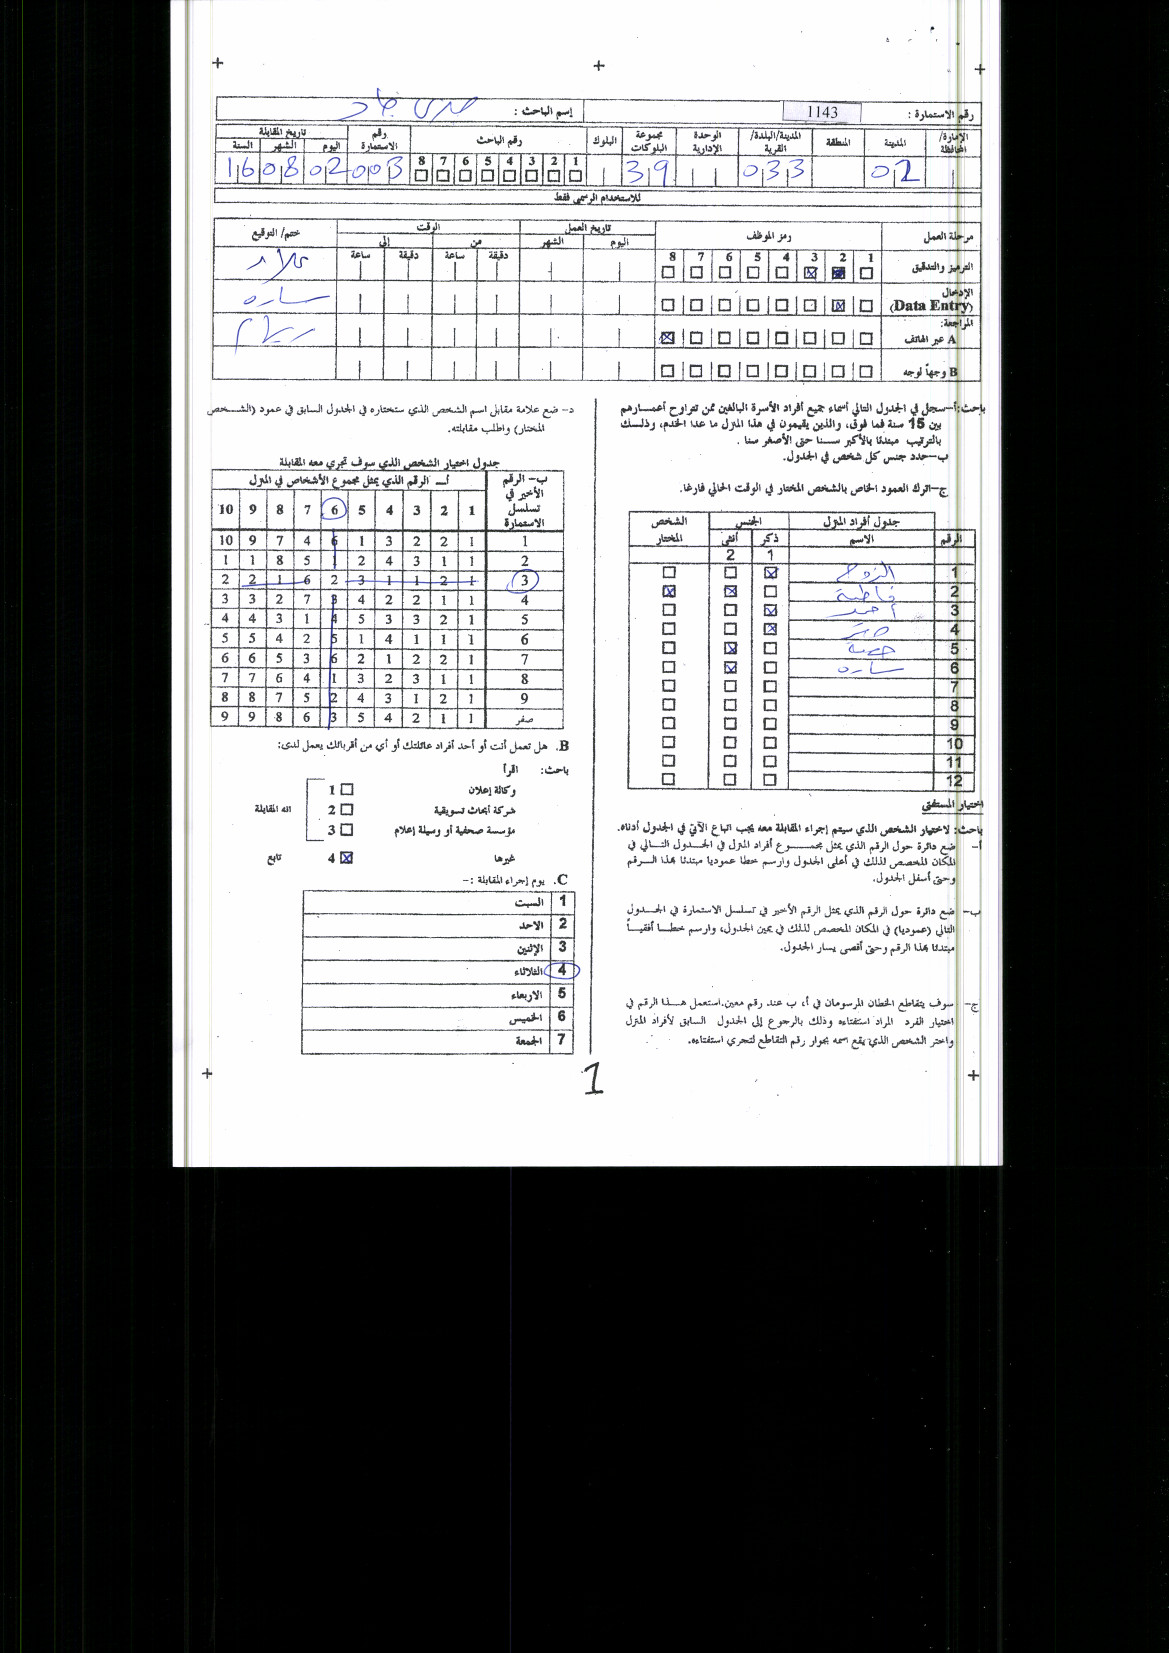 رقم الاستمارة : 1143 إسم الباحث :
الإمارة/المحافظة المدينة المنطقة المدينة/البلدة/القرية الوحدة الإدارية مجموعة البلوكات البلوك رقم الباحث رقم الاستمارة تاريخ المقابلة
اليوم الشهر السنة
1 2 3 4 5 6 7 8
02 033 39 003 02 08 16
للاستخدام الرسمي فقط
مرحلة العمل رمز الموظف تاريخ العمل الوقت ختم/ التوقيع
اليوم الشهر من إلى
1 2 3 4 5 6 7 8 دقيقة ساعة دقيقة ساعة
الترميز والتدقيق
الإدخال (Data Entry) ساره
المراجعة:
A عبر الهاتف
B وجهاً لوجه
باحث: أ–سجل في الجدول التالي أسماء جميع أفراد الأسرة البالغين ممن تتراوح أعمـــارهم
بين 15 سنة فما فوق، والذين يقيمون في هذا المنزل ما عدا الخدم، وذلـــك
بالترتيب مبتدئا بالأكبر ســـنا حتى الأصغر سنا .
ب–حدد جنس كل شخص في الجدول.
ج–اترك العمود الخاص بالشخص المختار في الوقت الحالي فارغا.
جدول أفراد المنزل الجنس الشخص المختار
الرقم الاسم ذكر أنثى
1 2
1 الزوج
2 فاطمة
3 أحمد
4
5
6 ساره
7
8
9
10
11
12
اختيار المستفتى
باحث: لاختيار الشخص الذي سيتم إجراء المقابلة معه يجب اتباع الآتي في الجدول أدناه.
أ– ضع دائرة حول الرقم الذي يمثل مجمـــوع أفراد المنزل في الجـــدول التـــالي في
المكان المخصص لذلك في أعلى الجدول وارسم خطا عموديا مبتدئا بهذا الـــرقم
وحتى أسفل الجدول.
ب– ضع دائرة حول الرقم الذي يمثل الرقم الأخير في تسلسل الاستمارة في الجـــدول
التالي (عموديا) في المكان المخصص لذلك في يمين الجدول، وارسم خطـــا أفقيـــاً
مبتدئا بهذا الرقم وحتى أقصى يسار الجدول.
ج– سوف يتقاطع الخطان المرسومان في أ، ب عند رقم معين.استعمل هـــذا الرقم في
اختيار الفرد المراد استفتاءه وذلك بالرجوع إلى الجدول السابق لأفراد المنزل
واختر الشخص الذي يقع اسمه بجوار رقم التقاطع لتجري استفتاءه.
د– ضع علامة مقابل اسم الشخص الذي ستختاره في الجدول السابق في عمود (الشـــخص
المختار) واطلب مقابلته.
جدول اختيار الشخص الذي سوف تجري معه المقابلة
ب– الرقم الأخير في تسلسل الاستمارة أـ الرقم الذي يمثل مجموع الأشخاص في المنزل
10 9 8 7 6 5 4 3 2 1
10 9 7 4 6 1 3 2 2 1 1
1 1 8 5 1 2 4 3 1 1 2
2 2 1 6 2 3 1 1 2 1 3
3 3 2 7 3 4 2 2 1 1 4
4 4 3 1 4 5 3 3 2 1 5
5 5 4 2 5 1 4 1 1 1 6
6 6 5 3 6 2 1 2 2 1 7
7 7 6 4 1 3 2 3 1 1 8
8 8 7 5 2 4 3 1 2 1 9
9 9 8 6 3 5 4 2 1 1 صفر
B. هل تعمل أنت أو أحد أفراد عائلتك أو أي من أقربائك يعمل لدى:
باحث: اقرأ
وكالة إعلان 1
شركة أبحاث تسويقية 2 انه المقابلة
مؤسسة صحفية أو وسيلة إعلام 3
غيرها 4 تابع
C. يوم إجراء المقابلة :–
1 السبت
2 الاحد
3 الإثنين
4 الثلاثاء
5 الاربعاء
6 الخميس
7 الجمعة
1